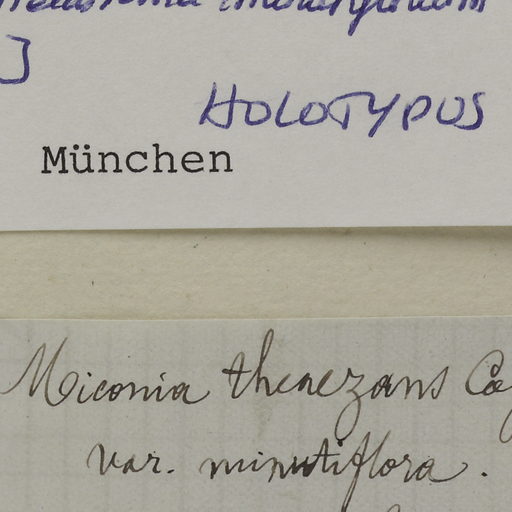 ]
HOLOTYPUS
München
Miconia theaezans
var. minutiflora.